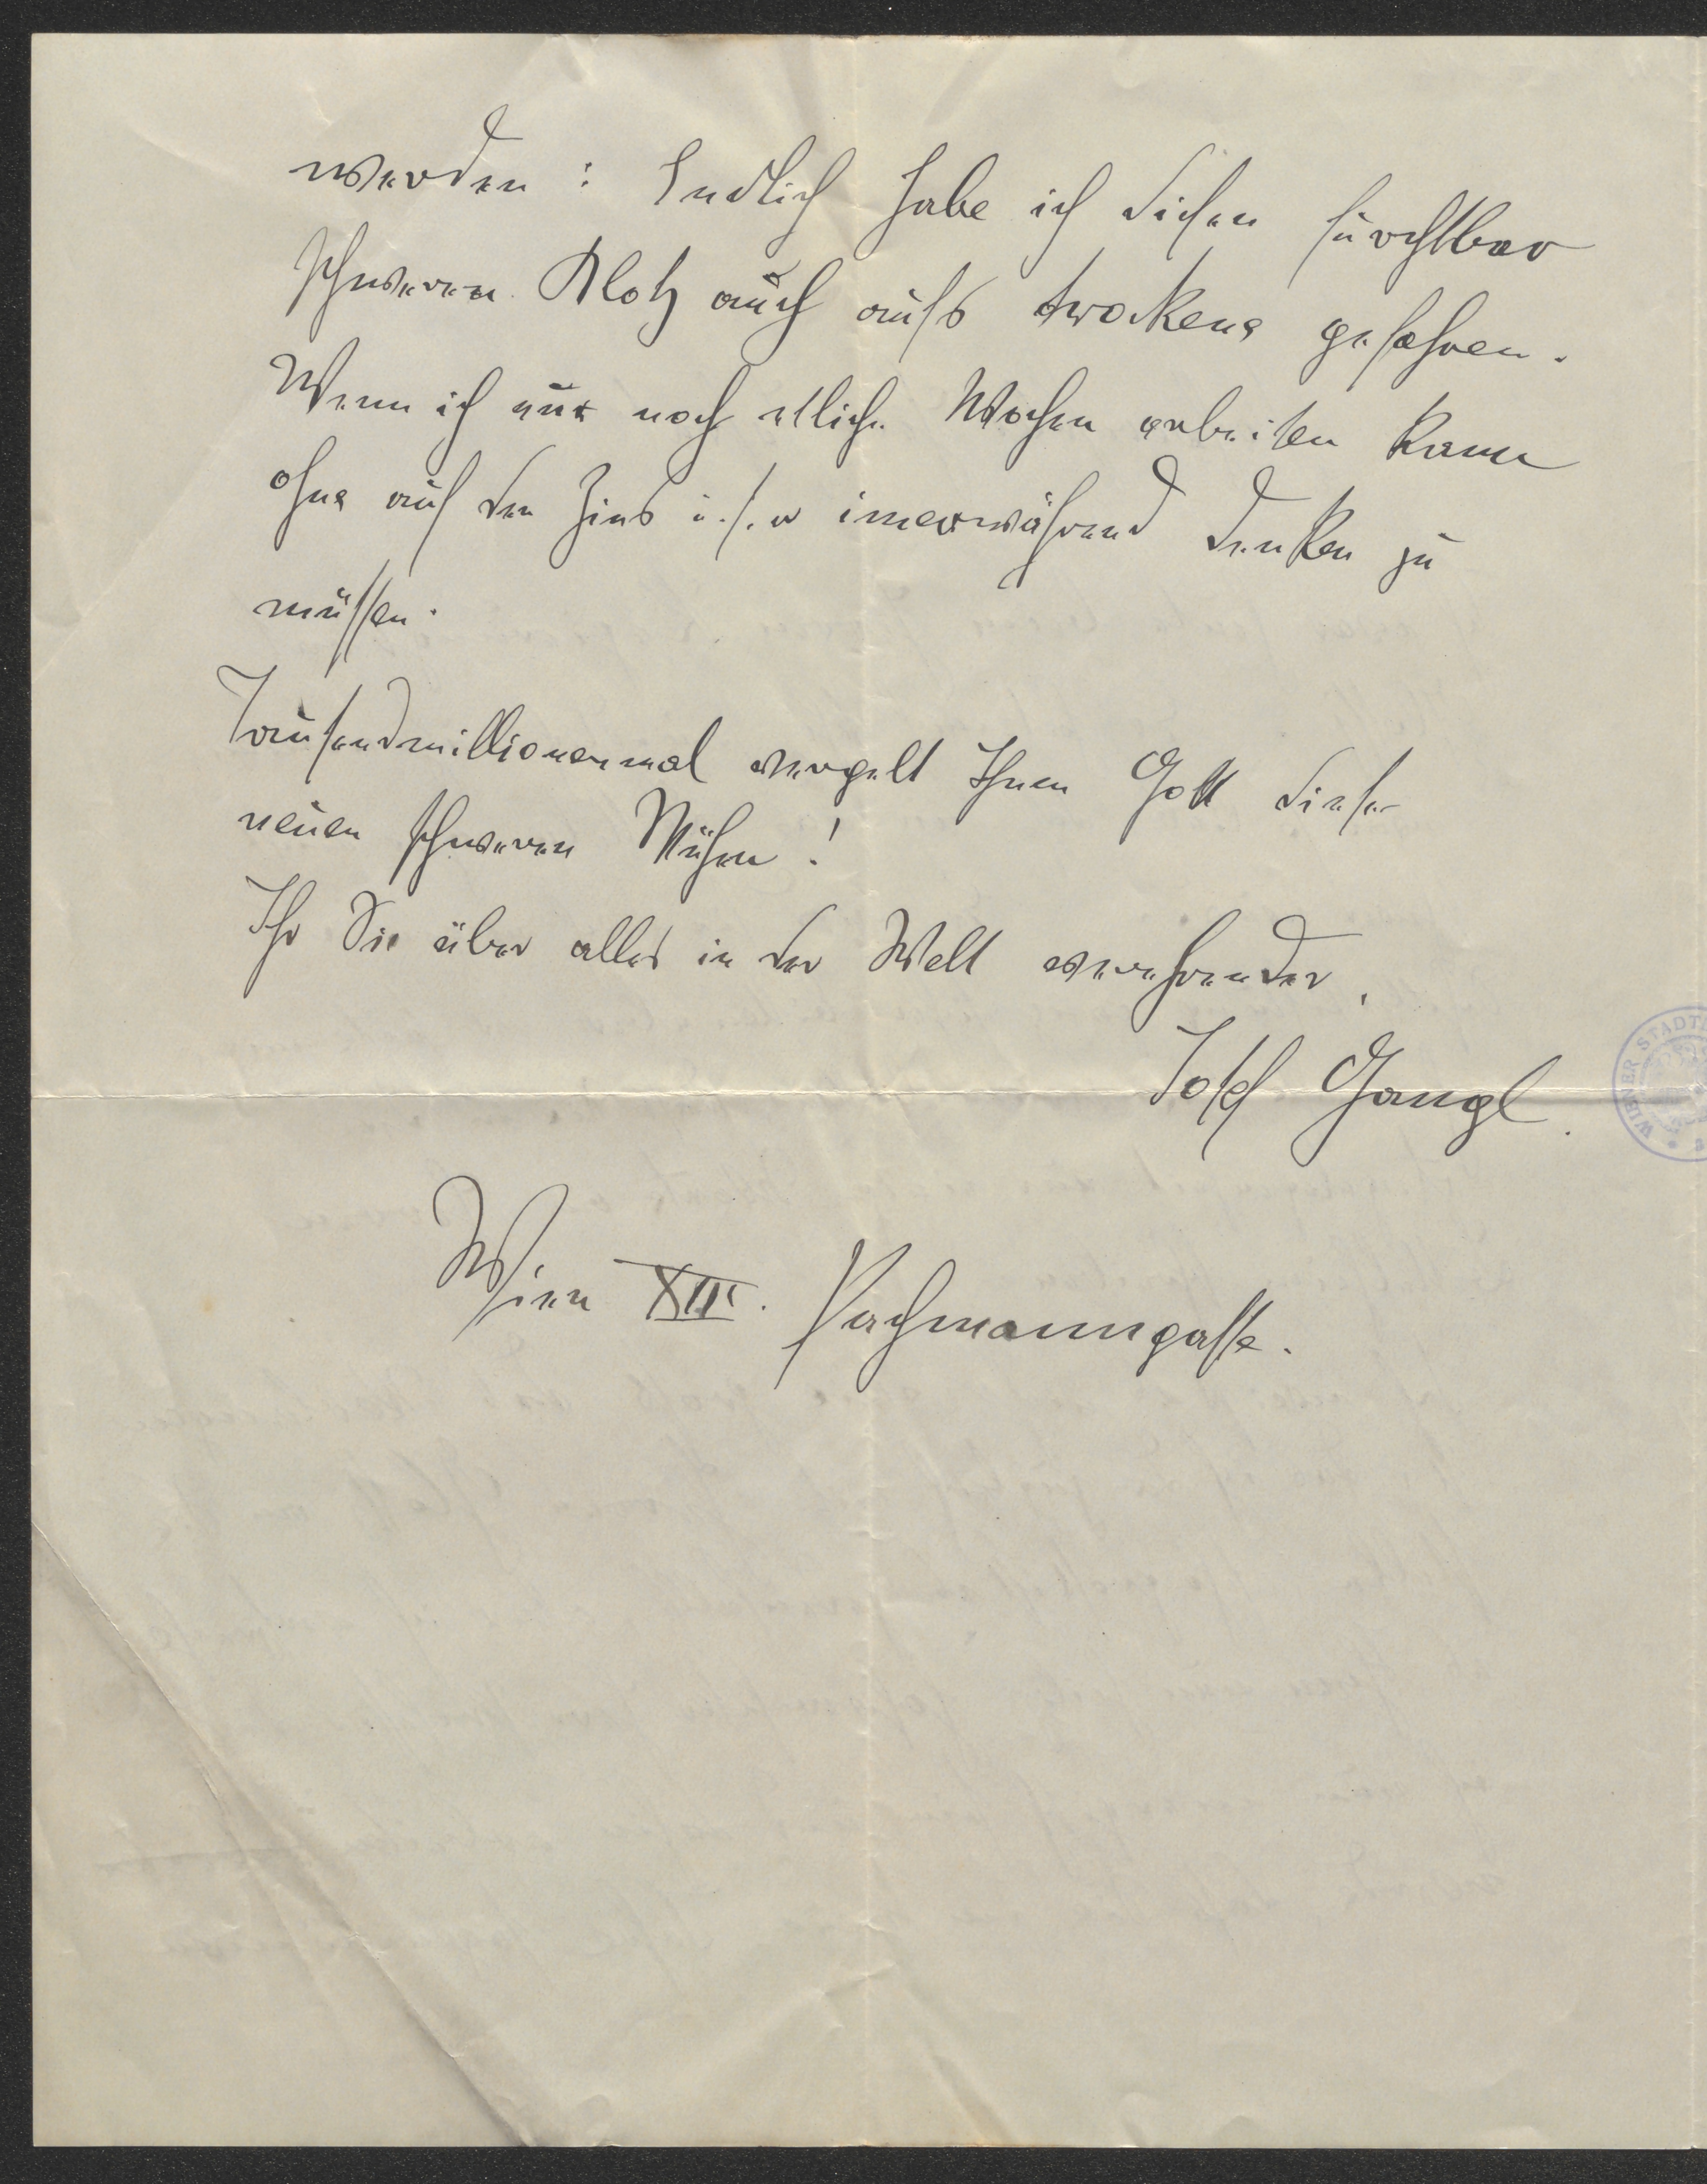 werden: Endlich habe ich diesen furchtbar
schweren Klotz auch aufs trockene gefahren.
Wenn ich nur noch etliche Wochen arbeiten kann
ohne auf den Zins u.s.w imerwährend denken zu
müssen.
Tausendmillionenmal vergelt Ihnen Gott diese
neuen schweren Mühen!
Ihr Sie über alles in der Welt verehrender,
Josef Gangl.
WIENER STADT
Wien XIII. Pachmanngasse.